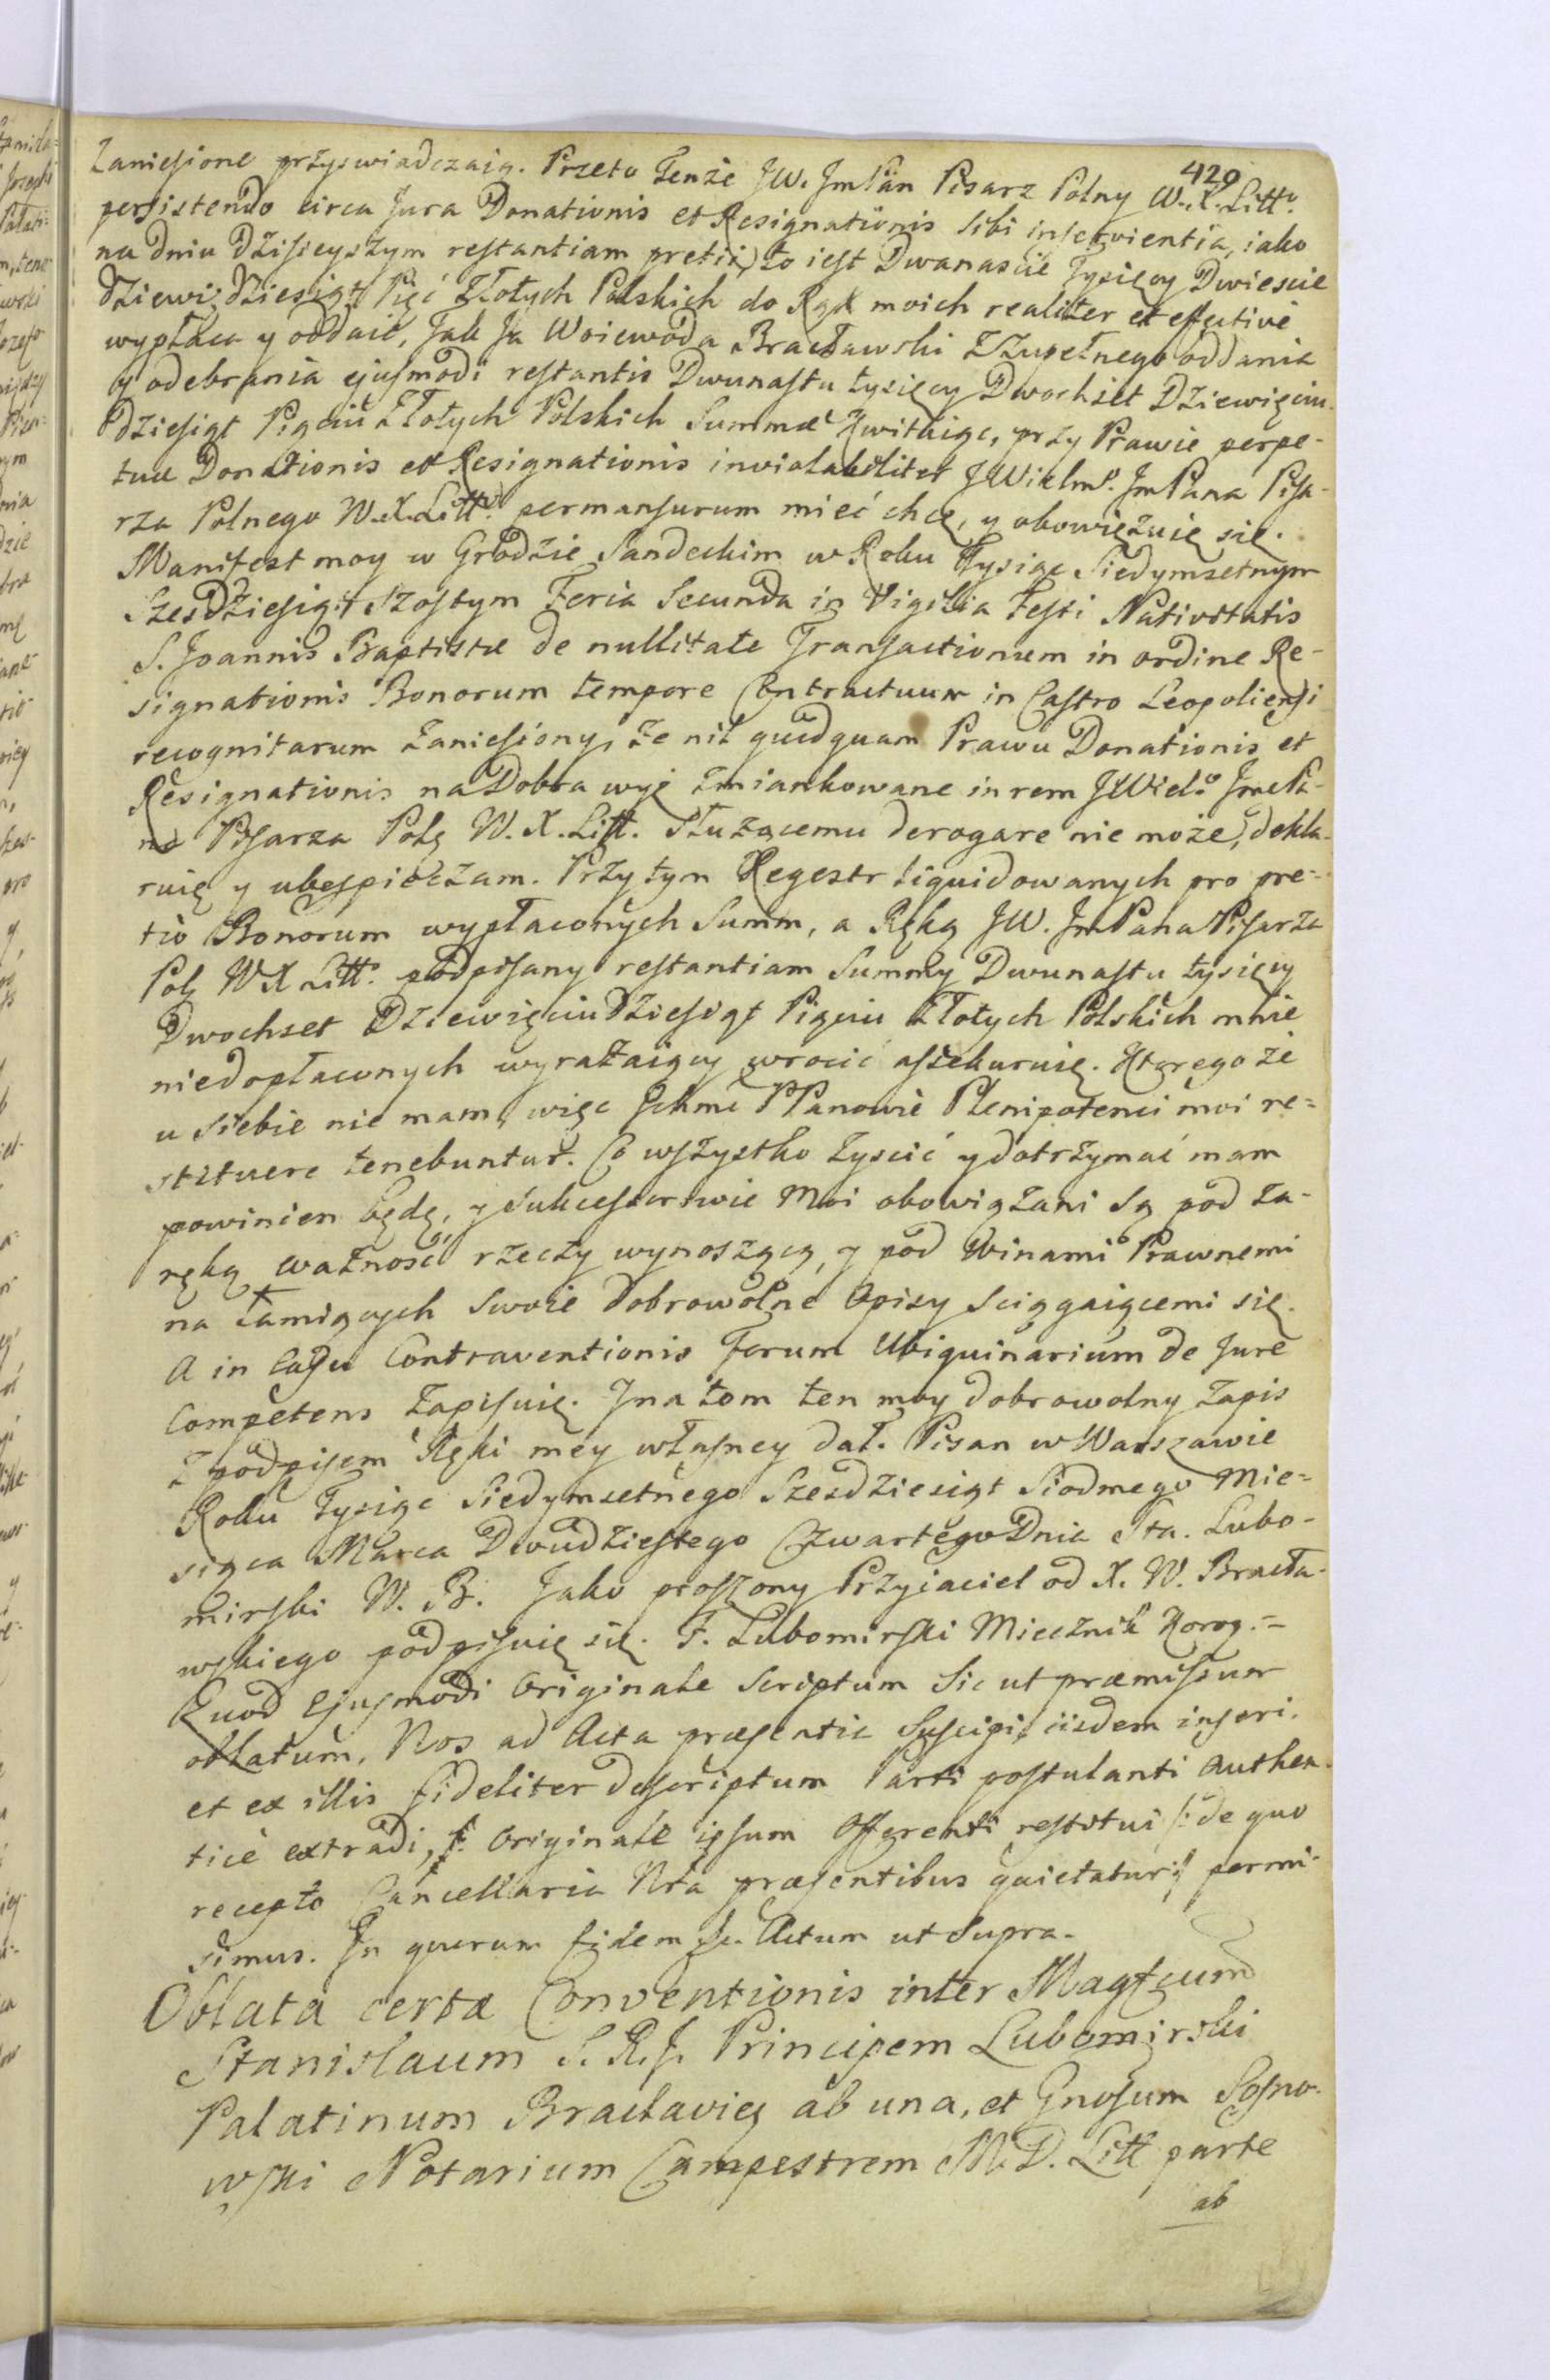 420
Zaniesione przyswiadczaią. Przeto Tenże JW. JmPan Pisarz Polny W. X. Litt.
persistendo circa Jura Donationis et Resignationis sibi inservientia, iako
na dniu dzisieyszym restantiam pretii, to iest Dwanascie Tysięcy Dwiescie
dziewiędziesiąt Pięć Złotych Polskich do Rąk moich realiter et effective
wypłaca y oddaie, Jak Ja Woiewoda Bracławski z zupełnego oddania
y odebrania ejusmodi restantis Dwunastu tysięcy Dwochset Dziewięciu-
dziesiąt Pięciu Złotych Polskich Summæ kwituiąc, przy Prawie perpe-
tuæ Donationis et Resignationis inviolabiliter JWielmo. JmPana Pisa-
rza Polnego W. X. Litto. permansurum mieć chcę, y obowięzuię się.
Manifest moy w Grodzie Sandeckim w Roku Tysiąc Siedymsetnym
Szesdziesiąt Szostym Feria Secunda in Vigilia Festi Nativitatis
S. Joannis Baptistæ de nullitate Transactionum in ordine Re-
signationis Bonorum tempore Contractuum in Castro Leopoliensi
recognitarum zaniesiony, że nil quidquam Prawu Donationis et
Resignationis na Dobra wyż zmiankowane in rem JWielo JmcPa-
na Pisarza Polg W. X. Litt. służącemu derogare nie może, dekla-
ruię y ubespieczam. Przytym Regestr liquidowanych pro pre-
tio Bonorum wypłaconych Summ, a Ręką JW. JmPana Pisarza
Polg W X Litto. podpisany restantiam Summy Dwunastu tysięcy
Dwochset Dziewięciudziesiąt Pięciu Złotych Polskich mnie
niedopłaconych wyrażaiący wrocić assekuruię. Ktorego że
u siebie nie mam, więc Ichmć PPanowie Plenipotenci moi re=
stituere tenebuntur. Co wszystko zyscić y dotrzymać mam
powinien będę, y Sukcessorowie Moi obowiązani są pod za-
ręką ważnosć rzeczy wynoszącą, y pod Winami Prawnemi
na łamiących swoie dobrowolne Opisy sciągaiącemi się.
A in Casu Contraventionis Forum Ubiquinarium de Jure
Competens zapisuię. Jna tom ten moy dobrowolny zapis
z podpisem Ręki mey własney dał. Pisan w Warszawie
Roku Tysiąc Siedymsetnego Szesdziesiąt Siodmego Mie=
siąca Marca Dwudziestego Czwartego Dnia Sta. Lubo-
mirski W. B. Jako proszony Przyiaciel od X. W. Bracła-
wskiego podpisuię się. F. Lubomirski Miecznik Korog.=
Quod ejusmodi Originale Scriptum sic ut præmissum
oblatum, Nos ad Acta præsentia Suscipi, iisdem inseri.
et ex illis fideliter descriptum Parti postulanti authen-
ticè extradi, Originale ipsum Offerenti restitui /: de quo
recepto Cancellaria Nra præsentibus quietatur :/ permi-
simus. In quorum fidem &c. Actum ut supra.
Oblata certæ Conventionis inter Magfcum
Stanislaum S. R. J. Principem Lubomirski
Palatinum Braclavieg ab una, et Gnosum Sosno-
wski Notarium Campestrem M. D. Litt parte
ab